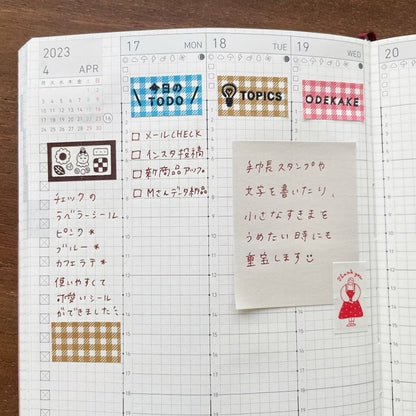 2023
4 APR
月 火 水 木 金 土 日
17 MON
18 TUE
19 WED
20
\ 今日の TODO /
TOPICS
ODEKAKE
□ メールCHECK
□ インスタ投稿
□ 新商品アップ
□ Mさんデータ納品
チェックの
ラベラーシール
ピンク*
ブルー*
カフェラテ*
使いやすくて
可愛いシール
ができました
手帳スタンプや
文字を書いたり、
小さなすきまを
うめたい時にも
重宝します
Thank you